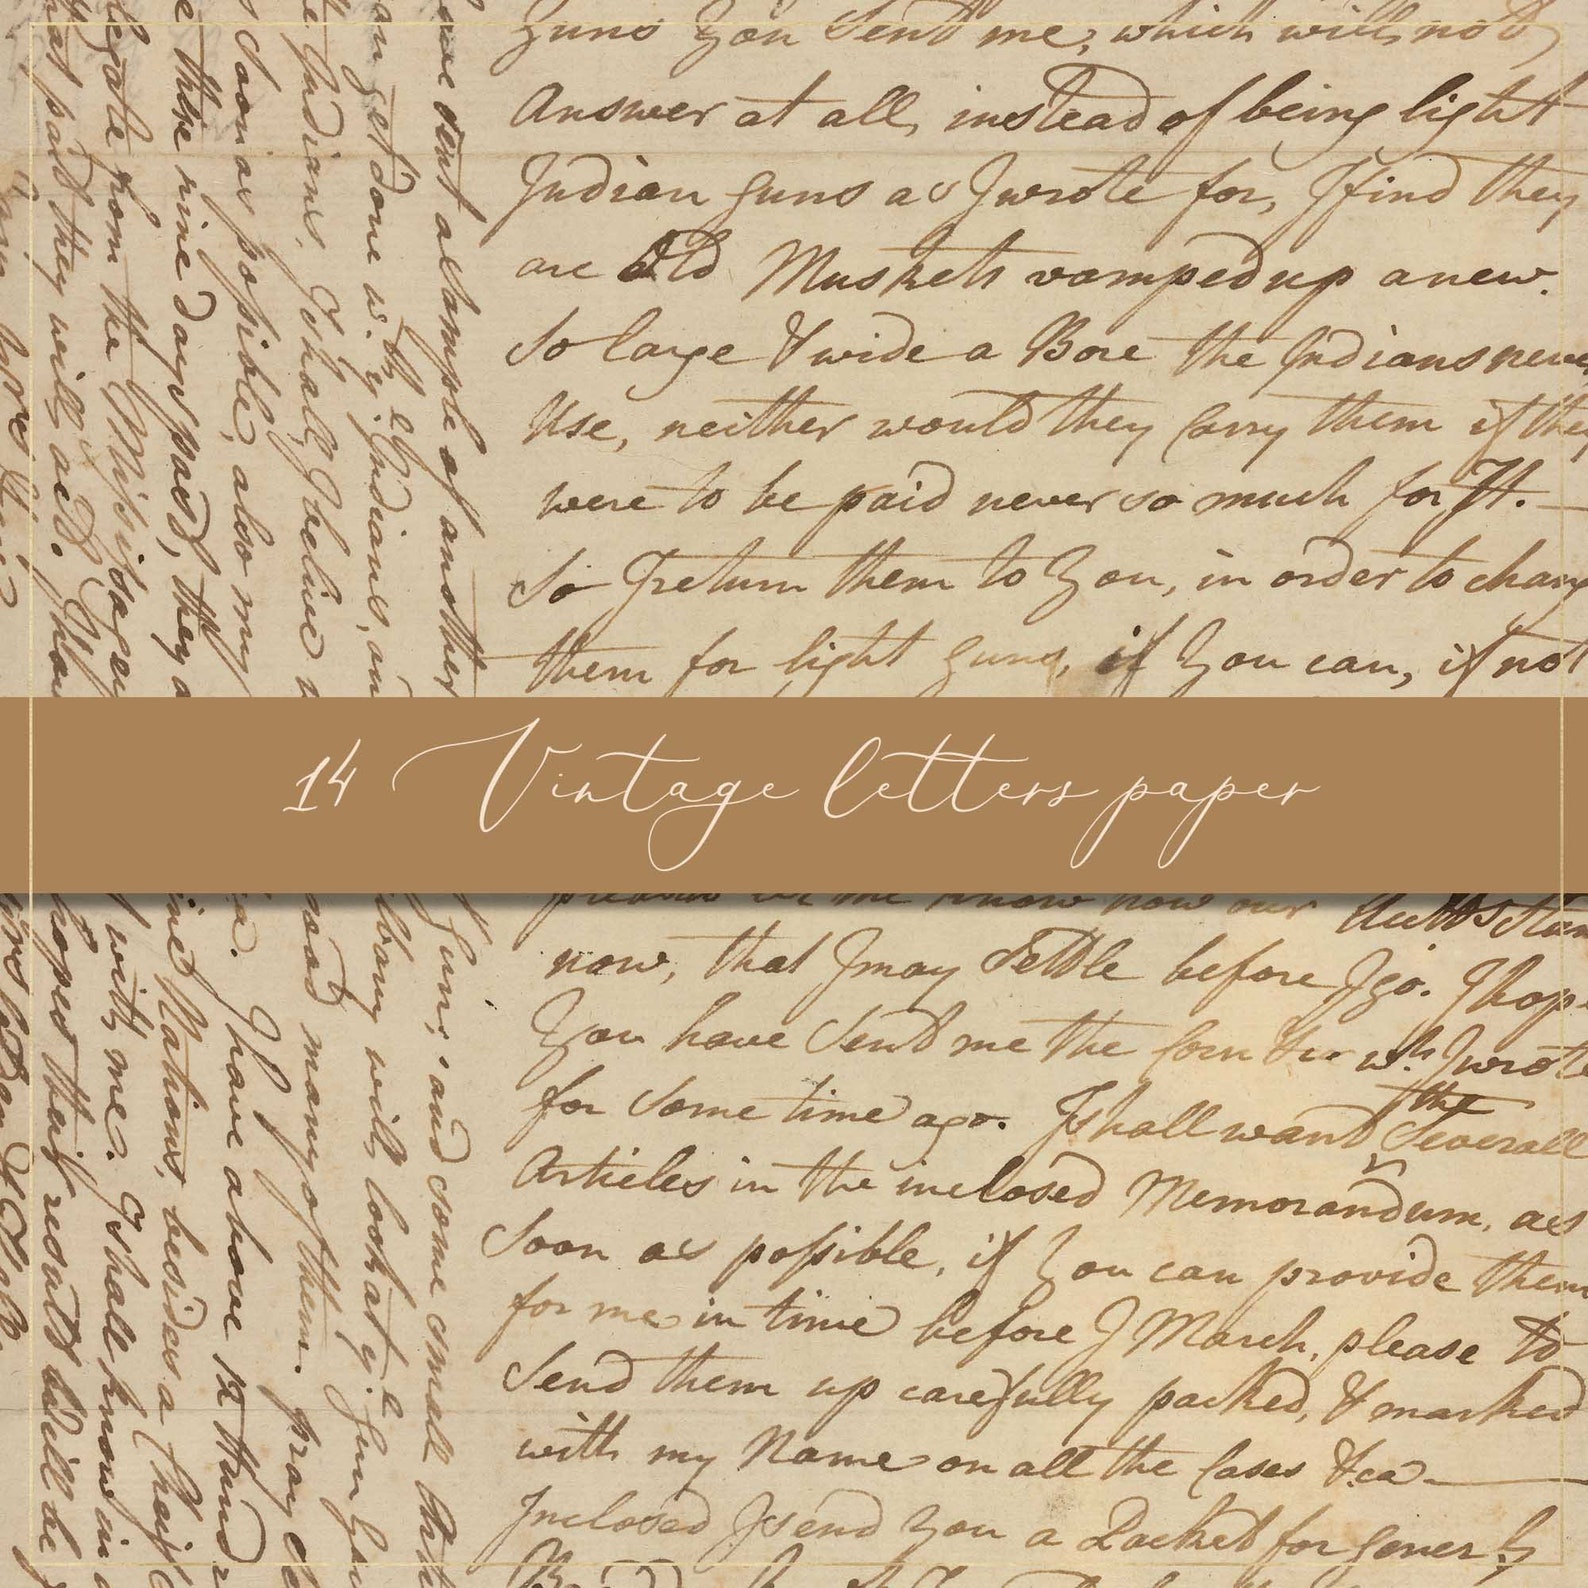 Guns You Send me, which will not
Answer at all, instead of being light
Indian Guns as I wrote for, I find they
are Old Muskets vamped up anew.
So large & wide a Bore the Indians never
Use, neither would they Carry them if they
were to be paid never so much for It. —
So I return them to You, in order to change
them for light Guns, if You can, if not
14 Vintage letters paper
please let me know how our
now, that I may Settle before I go. I hop
You have Send me the wh. I wrote
for Some time ago. I shall want the Severall
Articles in the inclosed Memorandum, as
Soon as possible, if You can provide them
for me in time before I March, please to
Send them up carefully packed, & marked
with my Name on all the Cases &ca —
Inclosed I send You a Packet for Gener
have sent a Sample of another
Gun, and some small
can get done
Indians, an
lbany will look at ye. Gun
e Indians, I shall I believe
good many of them. Pray
s Soon as possible, also my
a. I have above
e these nine days past, they a
ined Nations, besides a Chair
legate from the
t with me. I shall know in a
hat part they will act.
hoped their result will be